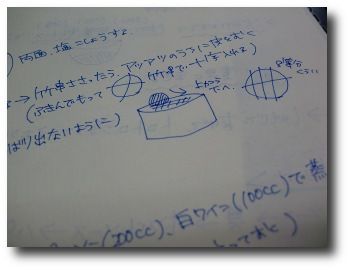 ) 両面、塩こしょうする。
→竹串ささったら、アツアツのうちに皮をむく
(ふきんでもって 竹串で十字入れる)
ばり出ないように)
上から
8等分
くらい
(200cc)、白ワイン(100cc)で蒸
とっておく)